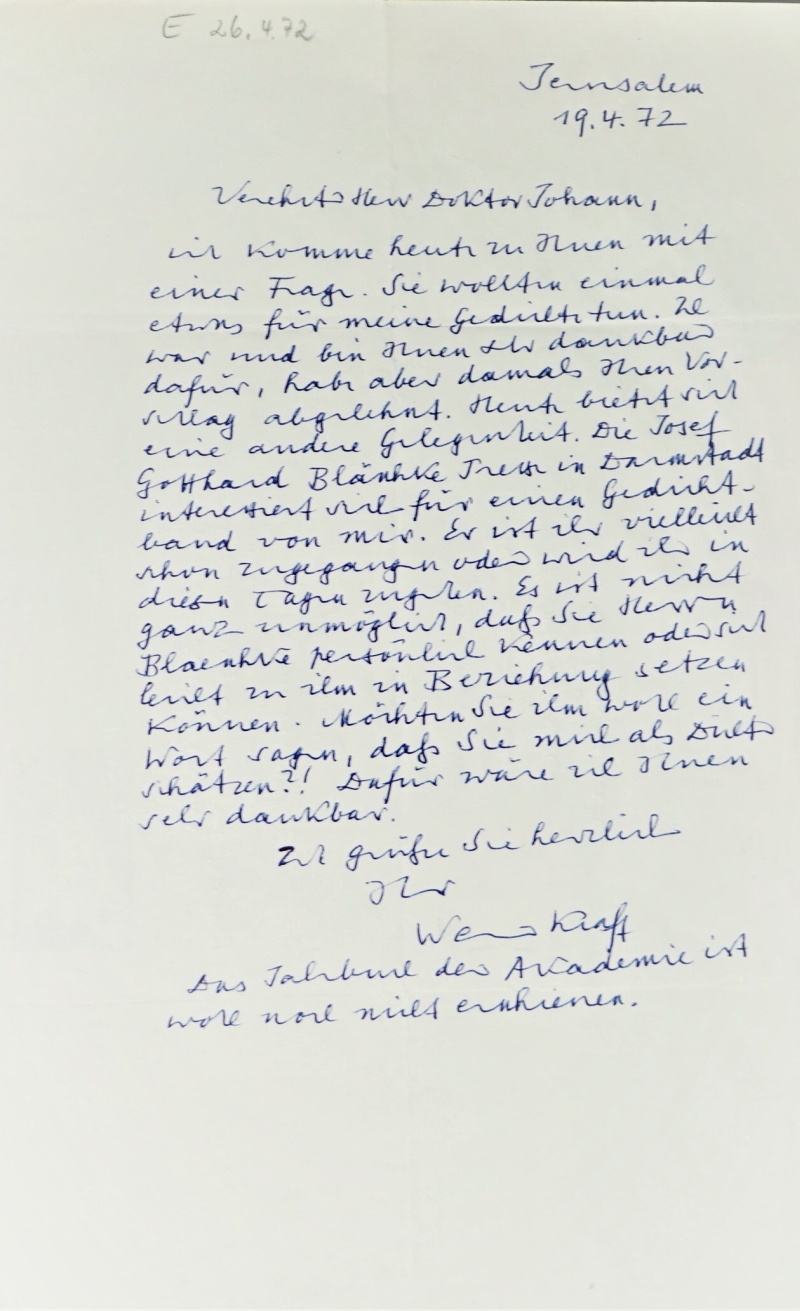 E 26.4.72
Jerusalem
19.4.72
Verehrter Herr Doktor Johann,
ich komme heute zu Ihnen mit
einer Frage. Sie wollten einmal
etwas für meine Gedichte tun. Ich
war und bin Ihnen sehr dankbar
dafür, habe aber damals Ihren Vor-
schlag abgelehnt. Heute bietet sich
eine andere Gelegenheit. Die Josef
Gotthard Bläschke Presse in Darmstadt
interessiert sich für einen Gedicht-
band von mir. Er ist ihr vielleicht
schon zugegangen oder wird ihr in
diesen Tagen zugehen. Es ist nicht
ganz unmöglich, daß Sie Herrn
Blaeschke persönlich kennen oder sich
leicht zu ihm in Beziehung setzen
können. Möchten Sie ihm wohl ein
Wort sagen, daß Sie mich als Dichter
schätzen?! Dafür wäre ich Ihnen
sehr dankbar.
Ich grüße Sie herzlich
Ihr
Werner Kraft
Das Jahrbuch der Akademie ist
wohl noch nicht erschienen.